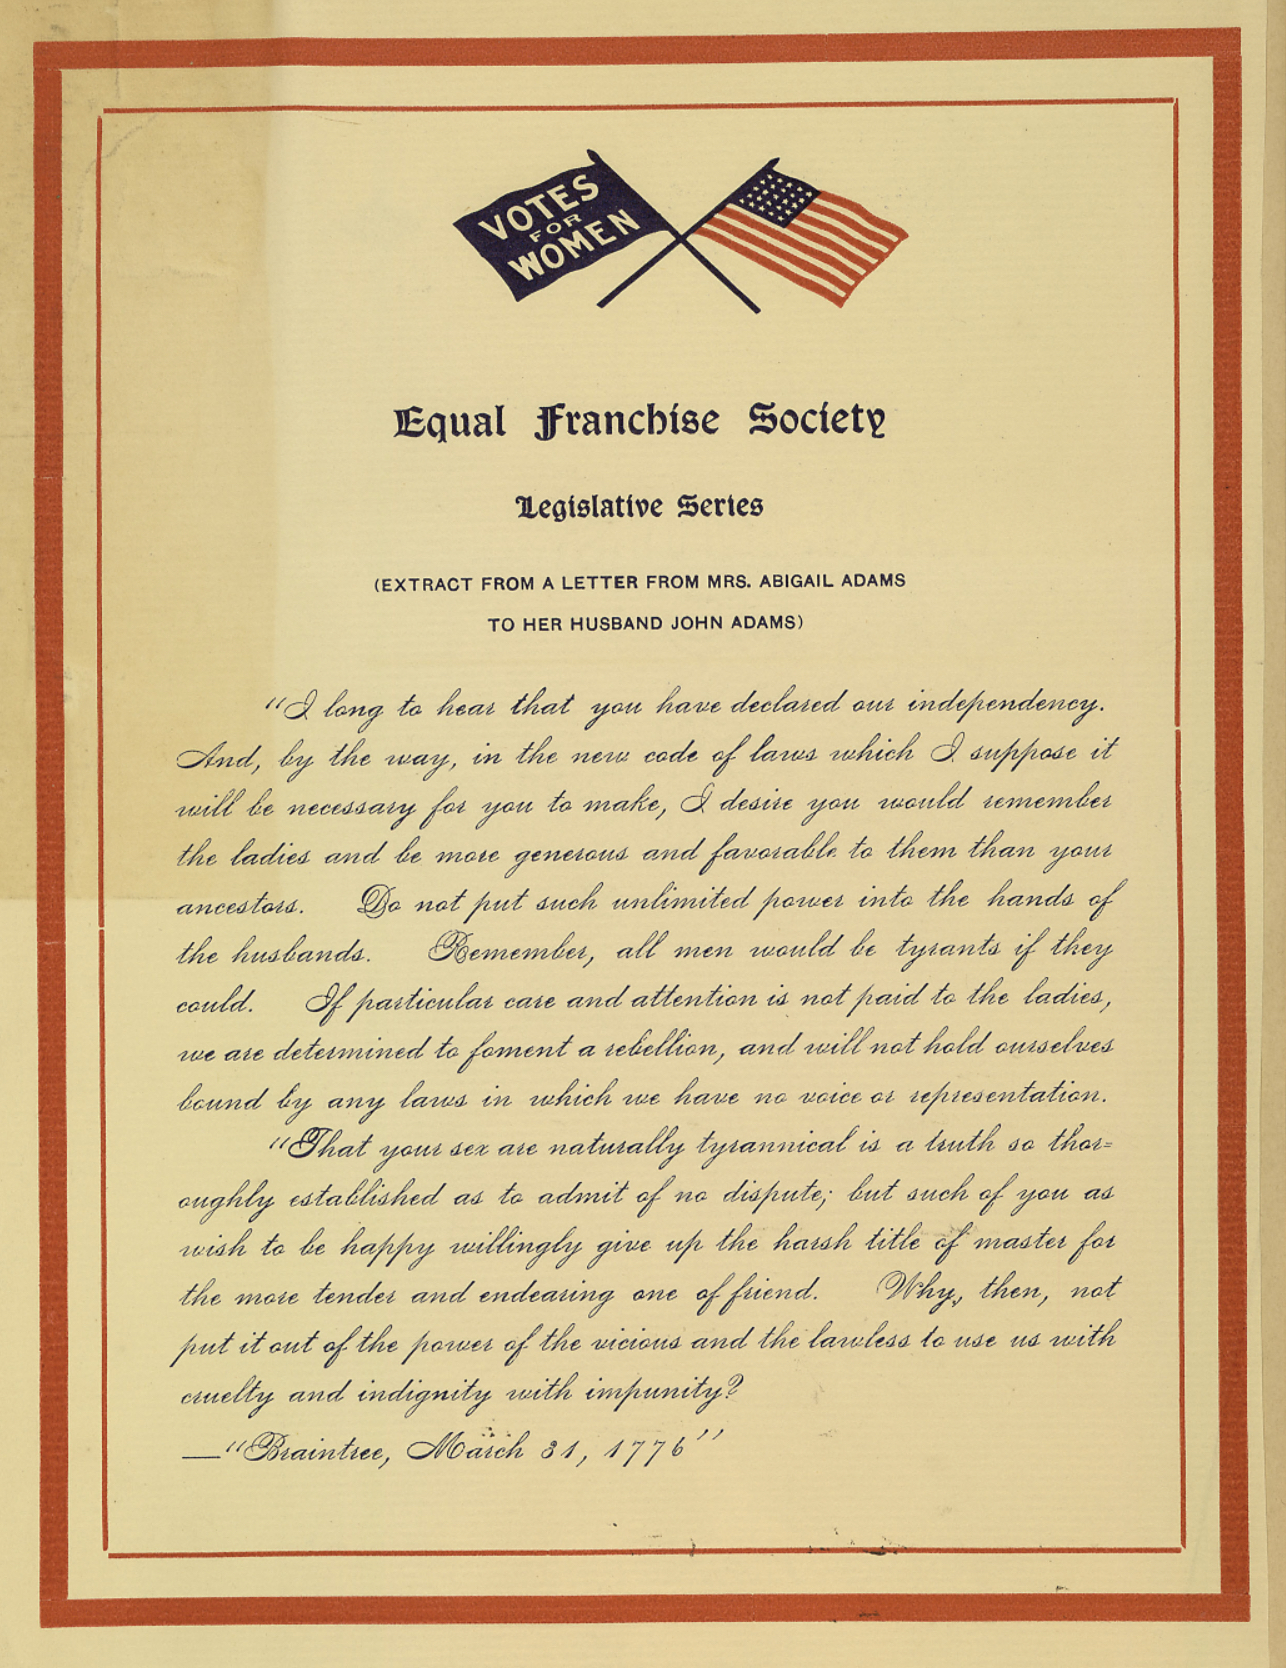 VOTES
FOR
WOMEN
Equal Franchise Society
Legislative Series
(EXTRACT FROM A LETTER FROM MRS. ABIGAIL ADAMS
TO HER HUSBAND JOHN ADAMS)
"I long to hear that you have declared our independency.
And, by the way, in the new code of laws which I suppose it
will be necessary for you to make, I desire you would remember
the ladies and be more generous and favorable to them than your
ancestors. Do not put such unlimited power into the hands of
the husbands. Remember, all men would be tyrants if they
could. If particular care and attention is not paid to the ladies,
we are determined to foment a rebellion, and will not hold ourselves
bound by any laws in which we have no voice or representation.
"That your sex are naturally tyrannical is a truth so thor=
oughly established as to admit of no dispute; but such of you as
wish to be happy willingly give up the harsh title of master for
the more tender and endearing one of friend. Why, then, not
put it out of the power of the vicious and the lawless to use us with
cruelty and indignity with impunity?
—"Braintree, March 31, 1776"